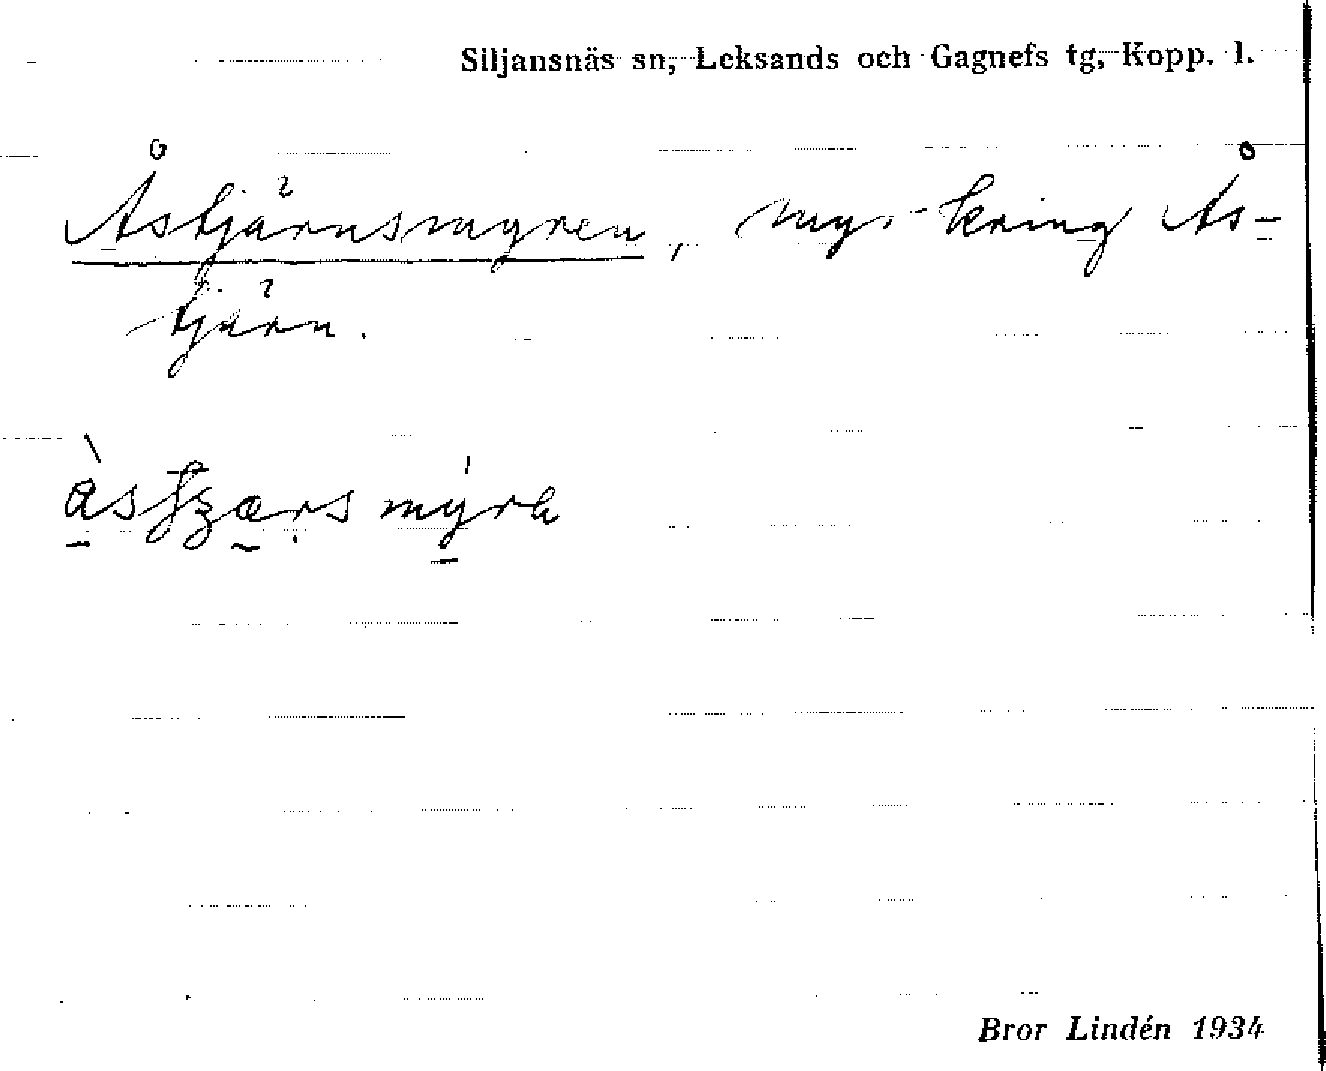 Siljansnäs sn, Leksands och Gagnefs tg, Kopp. l.
Åstjärnsmyren, myr kring Ås-
tjärn.
Bror Lindén 1934